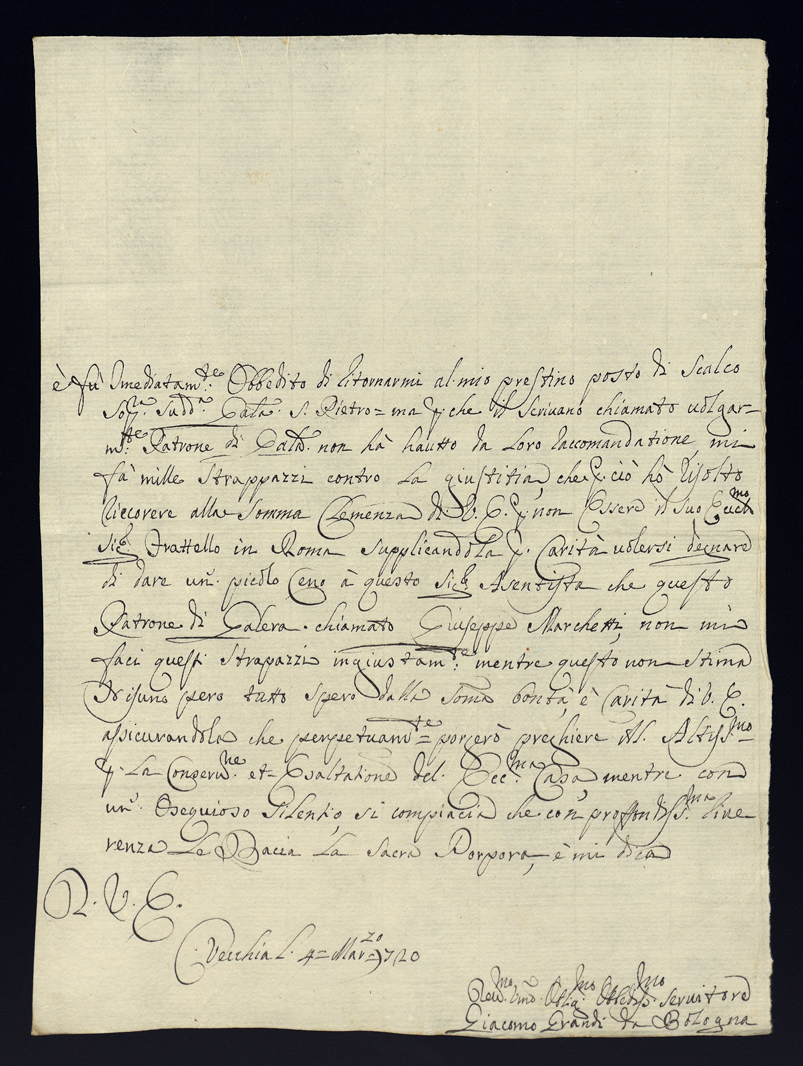 è fù Imediatam.te Obbedito di ritornarmi al mio prestino posto di Scalco
Sop.a Sudd.a Gala. S. Pietro = ma p. che il Scrivano chiamato volgar=
m.te Patrone di Gala. non hà hautto da Loro raccomandatione, mi
fà mille Strappazzi contro La giustitia, che p. ciò hò risolto
riccorere alla Somma Clemenza di V. E. p. non Essere il Suo
Sig. Frattello in Roma Supplicandola p. Carità volersi degnare
di dare un. picolo Ceno à questo Sig. Asentista che questo
Patrone di Galera. chiamato Giuseppe Marchetti, non mi
faci questi Strapazzi ingiustam.te mentre questo non stima
Nisuno però tutto Spero dalla Soma bontà, è Carità di V. E.
assicurandola che perpetuam.te = porgerò preghiere All. Altiss.mo =
p. La Conserv.ne et = Esaltatione del. Ecc.ma Casa, mentre con
un. Osequioso Silentio, si compiacia che con proffondiss.ma Rive
renza Le Bacia La Sacra Porpora, è mi dica
D. V. E.
C. Vecchia L. 4 = Marzo = 1720
Obblig.mo Obbedis.mo Servitore
Giacomo Grandi da Bologna